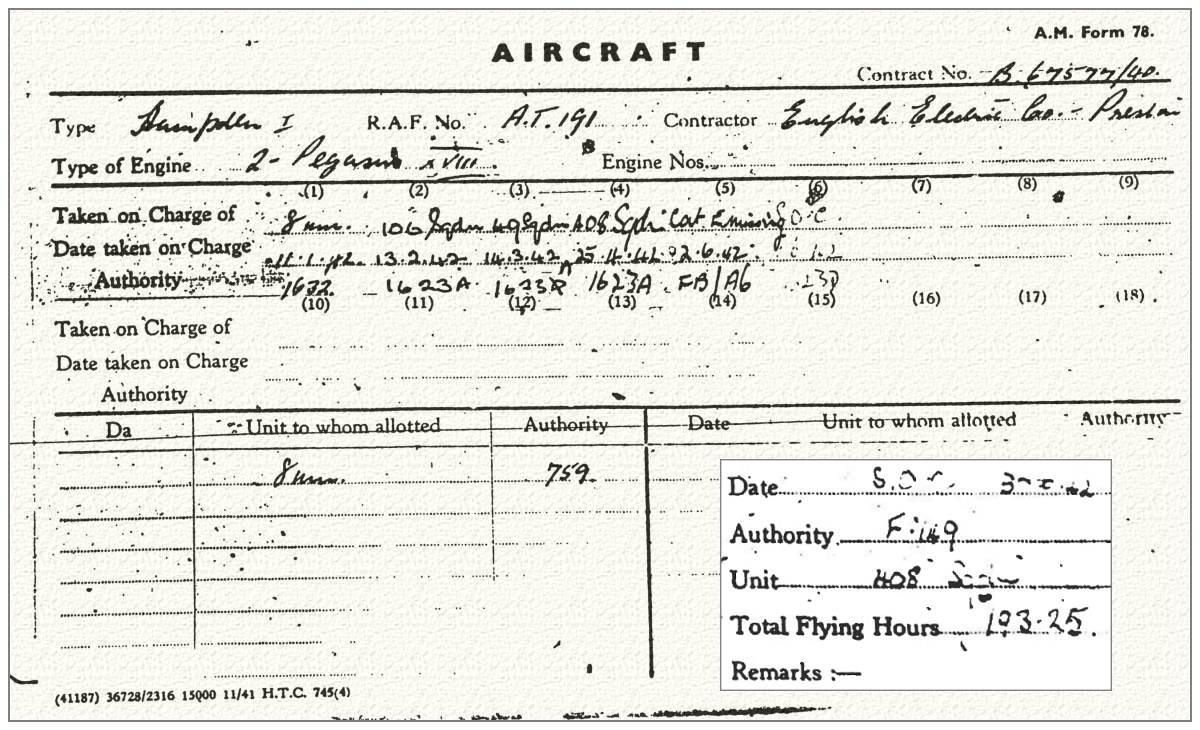 A.M. Form 78.
AIRCRAFT
Contract No. B. 67577/40.
Type Hampden I R.A.F. No. A.T. 191 Contractor English Electric Co. - Preston
Type of Engine 2 - Pegasus XVIII. Engine Nos.
(1) (2) (3) (4) (5) (6) (7) (8) (9)
Taken on Charge of 8 mu. 106 Sqdn 49 Sqdn 408 Sqdn Cat E missing S.O.C
Date taken on Charge 11.1.42. 13.2.42 14.3.42 25.4.42 2.6.42.
Authority 1632 1623A 1623A 1623A FB/A6
(10) (11) (12) (13) (14) (15) (16) (17) (18)
Taken on Charge of
Date taken on Charge
Authority
Da Unit to whom allotted Authority Date Unit to whom allotted Authority
8 mu. 759.
Date S.O.
Authority F.149
Unit 408
Total Flying Hours 193.25.
Remarks :—
(41187) 36728/2316 15000 11/41 H.T.C. 745(4)